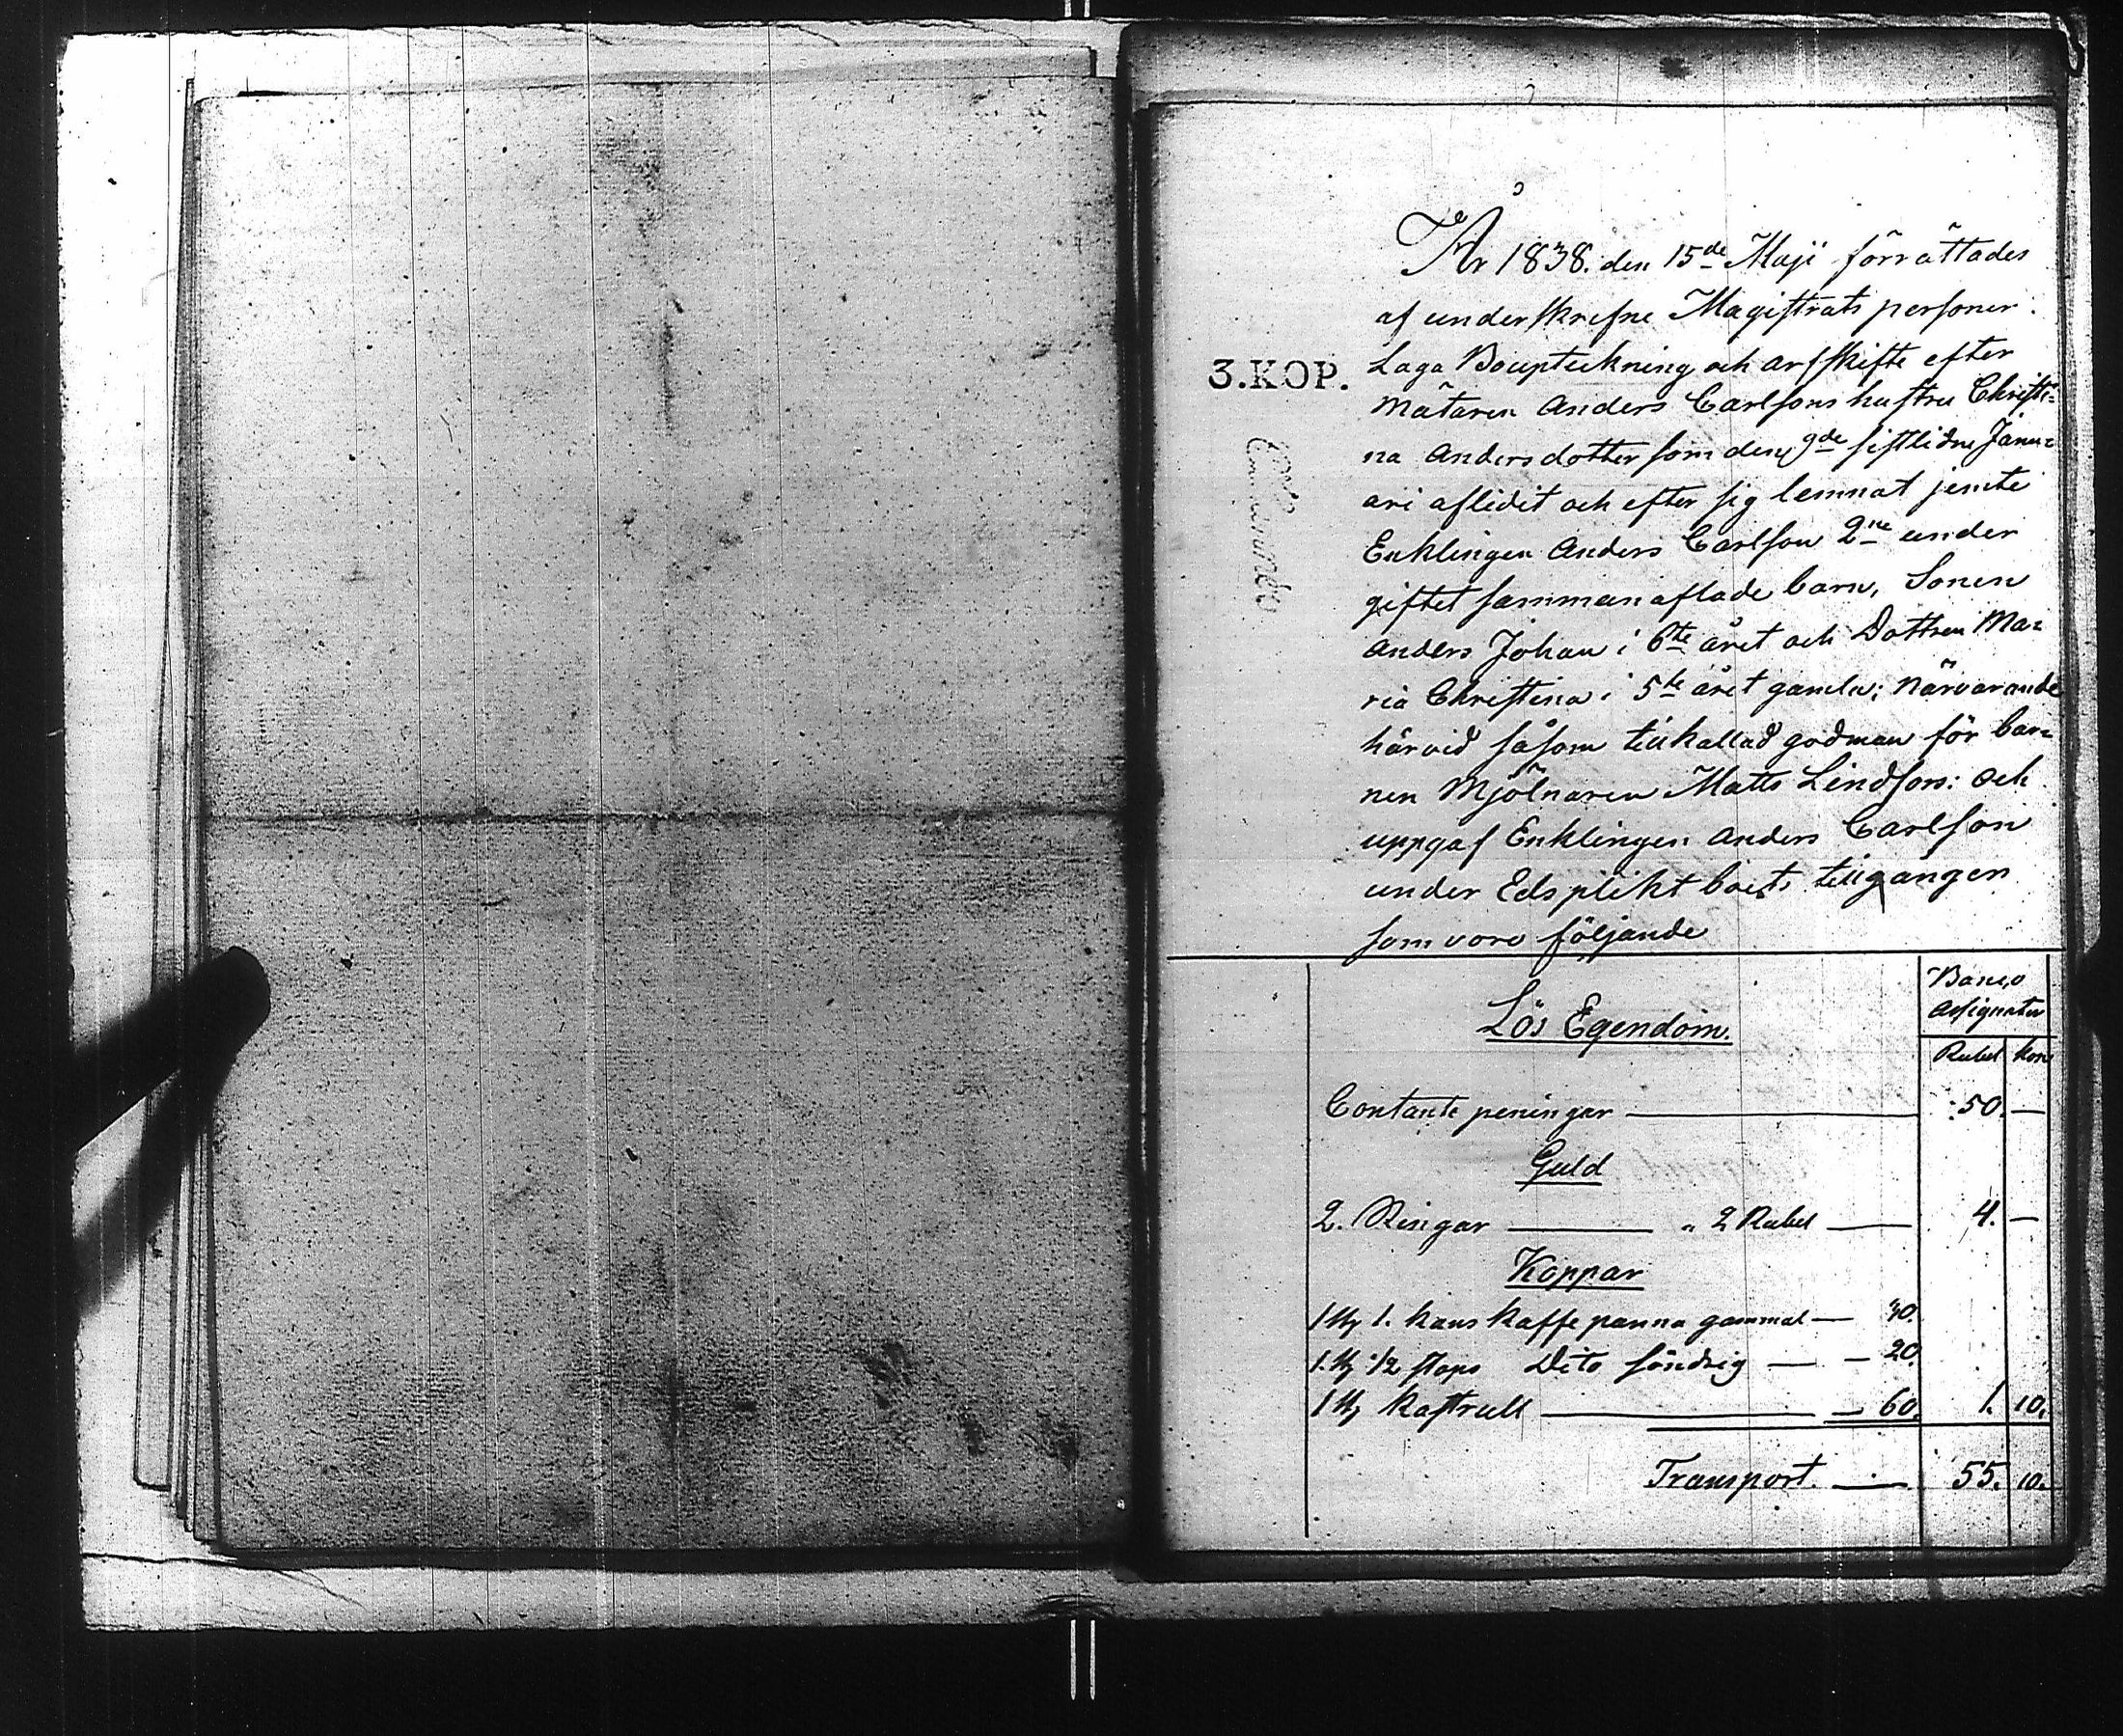 År 1838. den 15de Maji förrättades
af underskrefne Magistrats personer
3.KOP.
Laga Bouptekning och arfskifte efter
Mätaren Anders Carlsons hustru Christi=
na Andersdotter som den 9de sistlidne Janu=
ari aflidit och efter sig lemnat jemte
Enklingen Anders Carlson 2ne under
giftet sammanaflade barn, Sonen
Anders Johan i 6te året och Dottren Ma=
ria Christina i 5te året gamla; Närvarande
härvid såsom tillkallad godman för bar=
nen Mjölnaren Matts Lindfors: och
uppgaf Enklingen Anders Carlson
under Edsplikt boets tillgångar
som voro följande
Banco
Assignater
Lös Egendom.
Rubel Kop
Contante peningar 50. —
Guld
2. Ringar " 2 Rubel 4. —
Koppar
1 st 1. kans kaffepanna gammal — 30.
1. st 1/2 stops Dito söndrig — 20.
1 st Kastrull — 60. 1. 10.
Transport. 55. 10.